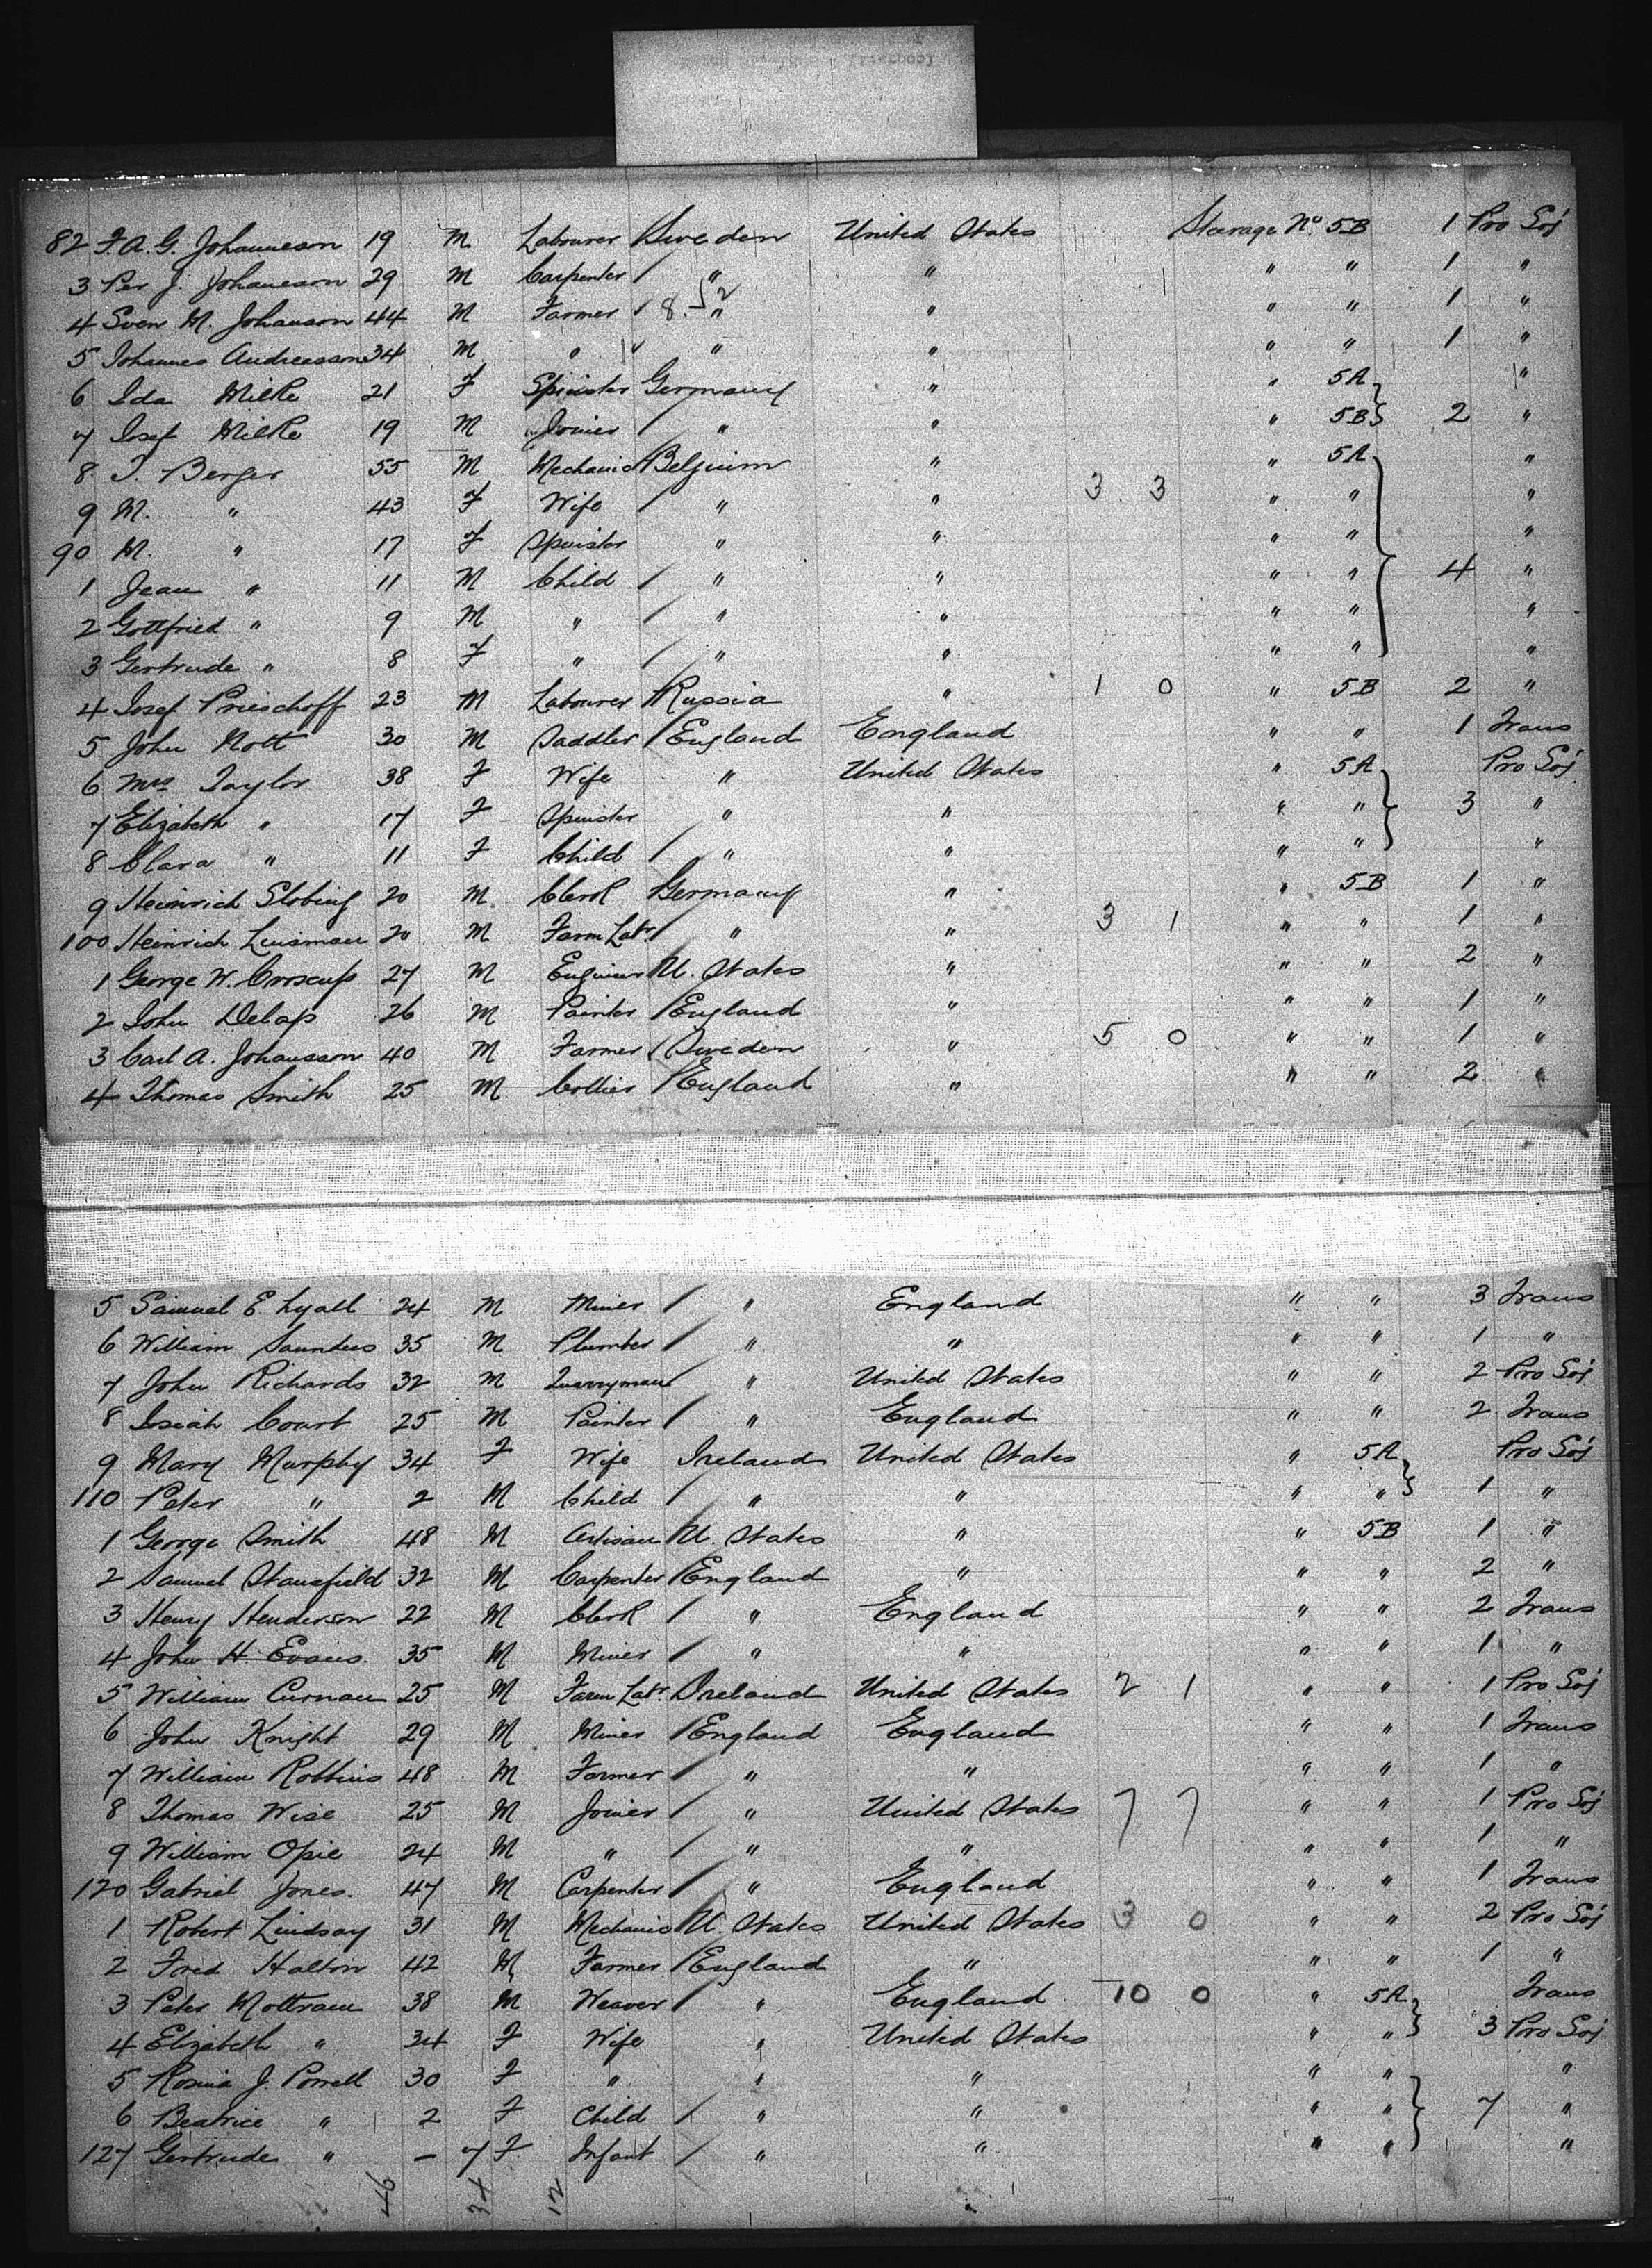 82 F. A. G. Johanneson 19 M Labourer Sweden United States Steerage No. 5B 1 Pro Soj
3 Per J. Johaneson 29 M Carpenter / " " " " 1 "
4 Sven M. Johanson 44 M Farmer / " " " " 1 "
5 Johannes Andreasson 34 M " " " " " 1 "
6 Ida Milke 21 F Spinster Germany " " 5A "
7 Josef Milke 19 M Joiner / " " " 5B 2 "
8 J. Berger 55 M Mechanic Belgium " " 5A "
9 M. " 43 F Wife / " " 3 3 " " "
90 M. " 17 F Spinster " " " " "
1 Jean " 11 M Child / " " " " 4 "
2 Gottfried " 9 M " / " " " " "
3 Gertrude " 8 F " / " " " " "
4 Josef Prieschoff 23 M Labourer Russia " 1 0 " 5B 2 "
5 John Nott 30 M Saddler / England England " " 1 Trans
6 Mrs Taylor 38 F Wife " United States " 5A Pro Soj
7 Elizabeth " 17 F Spinster " " " " 3 "
8 Clara " 11 F Child / " " " " "
9 Heinrich Slobing 20 M Clerk Germany " " 5B 1 "
100 Heinrich Luisman 20 M Farm Labr / " " 3 1 " " 1 "
1 George W. Croscup 27 M Engineer U. States " " " 2 "
2 John Delap 26 M Painter / England " " " 1 "
3 Carl A. Johansson 40 M Farmer / Sweden " 5 0 " " 1 "
4 Thomas Smith 25 M Collier / England " " " 2 "
5 Samuel E Lyall 24 M Miner / " England " " 3 Trans
6 William Saunders 35 M Plumber / " " " " 1 "
7 John Richards 32 M Quarryman " United States " " 2 Pro Soj
8 Josiah Court 25 M Painter / " England " " 2 Trans
9 Mary Murphy 34 F Wife Ireland United States " 5A Pro Soj
110 Peter " 2 M Child / " " " " 1 "
1 George Smith 48 M Artisan U. States " " 5B 1 "
2 Samuel Stansfield 32 M Carpenter / England " " " 2 "
3 Henry Henderson 22 M Clerk / " England " " 2 Trans
4 John H. Evans 35 M Miner / " " " " 1 "
5 William Curnau 25 M Farm Labr. Ireland United States 2 1 " " 1 Pro Soj
6 John Knight 29 M Miner / England England " " 1 Trans
7 William Robbins 48 M Farmer / " " " " 1 "
8 Thomas Wise 25 M Joiner / " United States 7 7 " " 1 Pro Soj
9 William Opie 24 M " / " " " " 1 "
120 Gabriel Jones 47 M Carpenter / " England " " 1 Trans
1 Robert Lindsay 31 M Mechanic U. States United States 3 0 " " 2 Pro Soj
2 Fred Halton 42 M Farmer / England " " " 1 "
3 Peter Mottram 38 M Weaver / " England 10 0 " 5A Trans
4 Elizabeth " 34 F Wife " United States " " 3 Pro Soj
5 Rosina J. Powell 30 F " " " " " "
6 Beatrice " 2 F Child / " " " " 7 "
127 Gertrude " – 7 F Infant / " " " " "
46 34 12